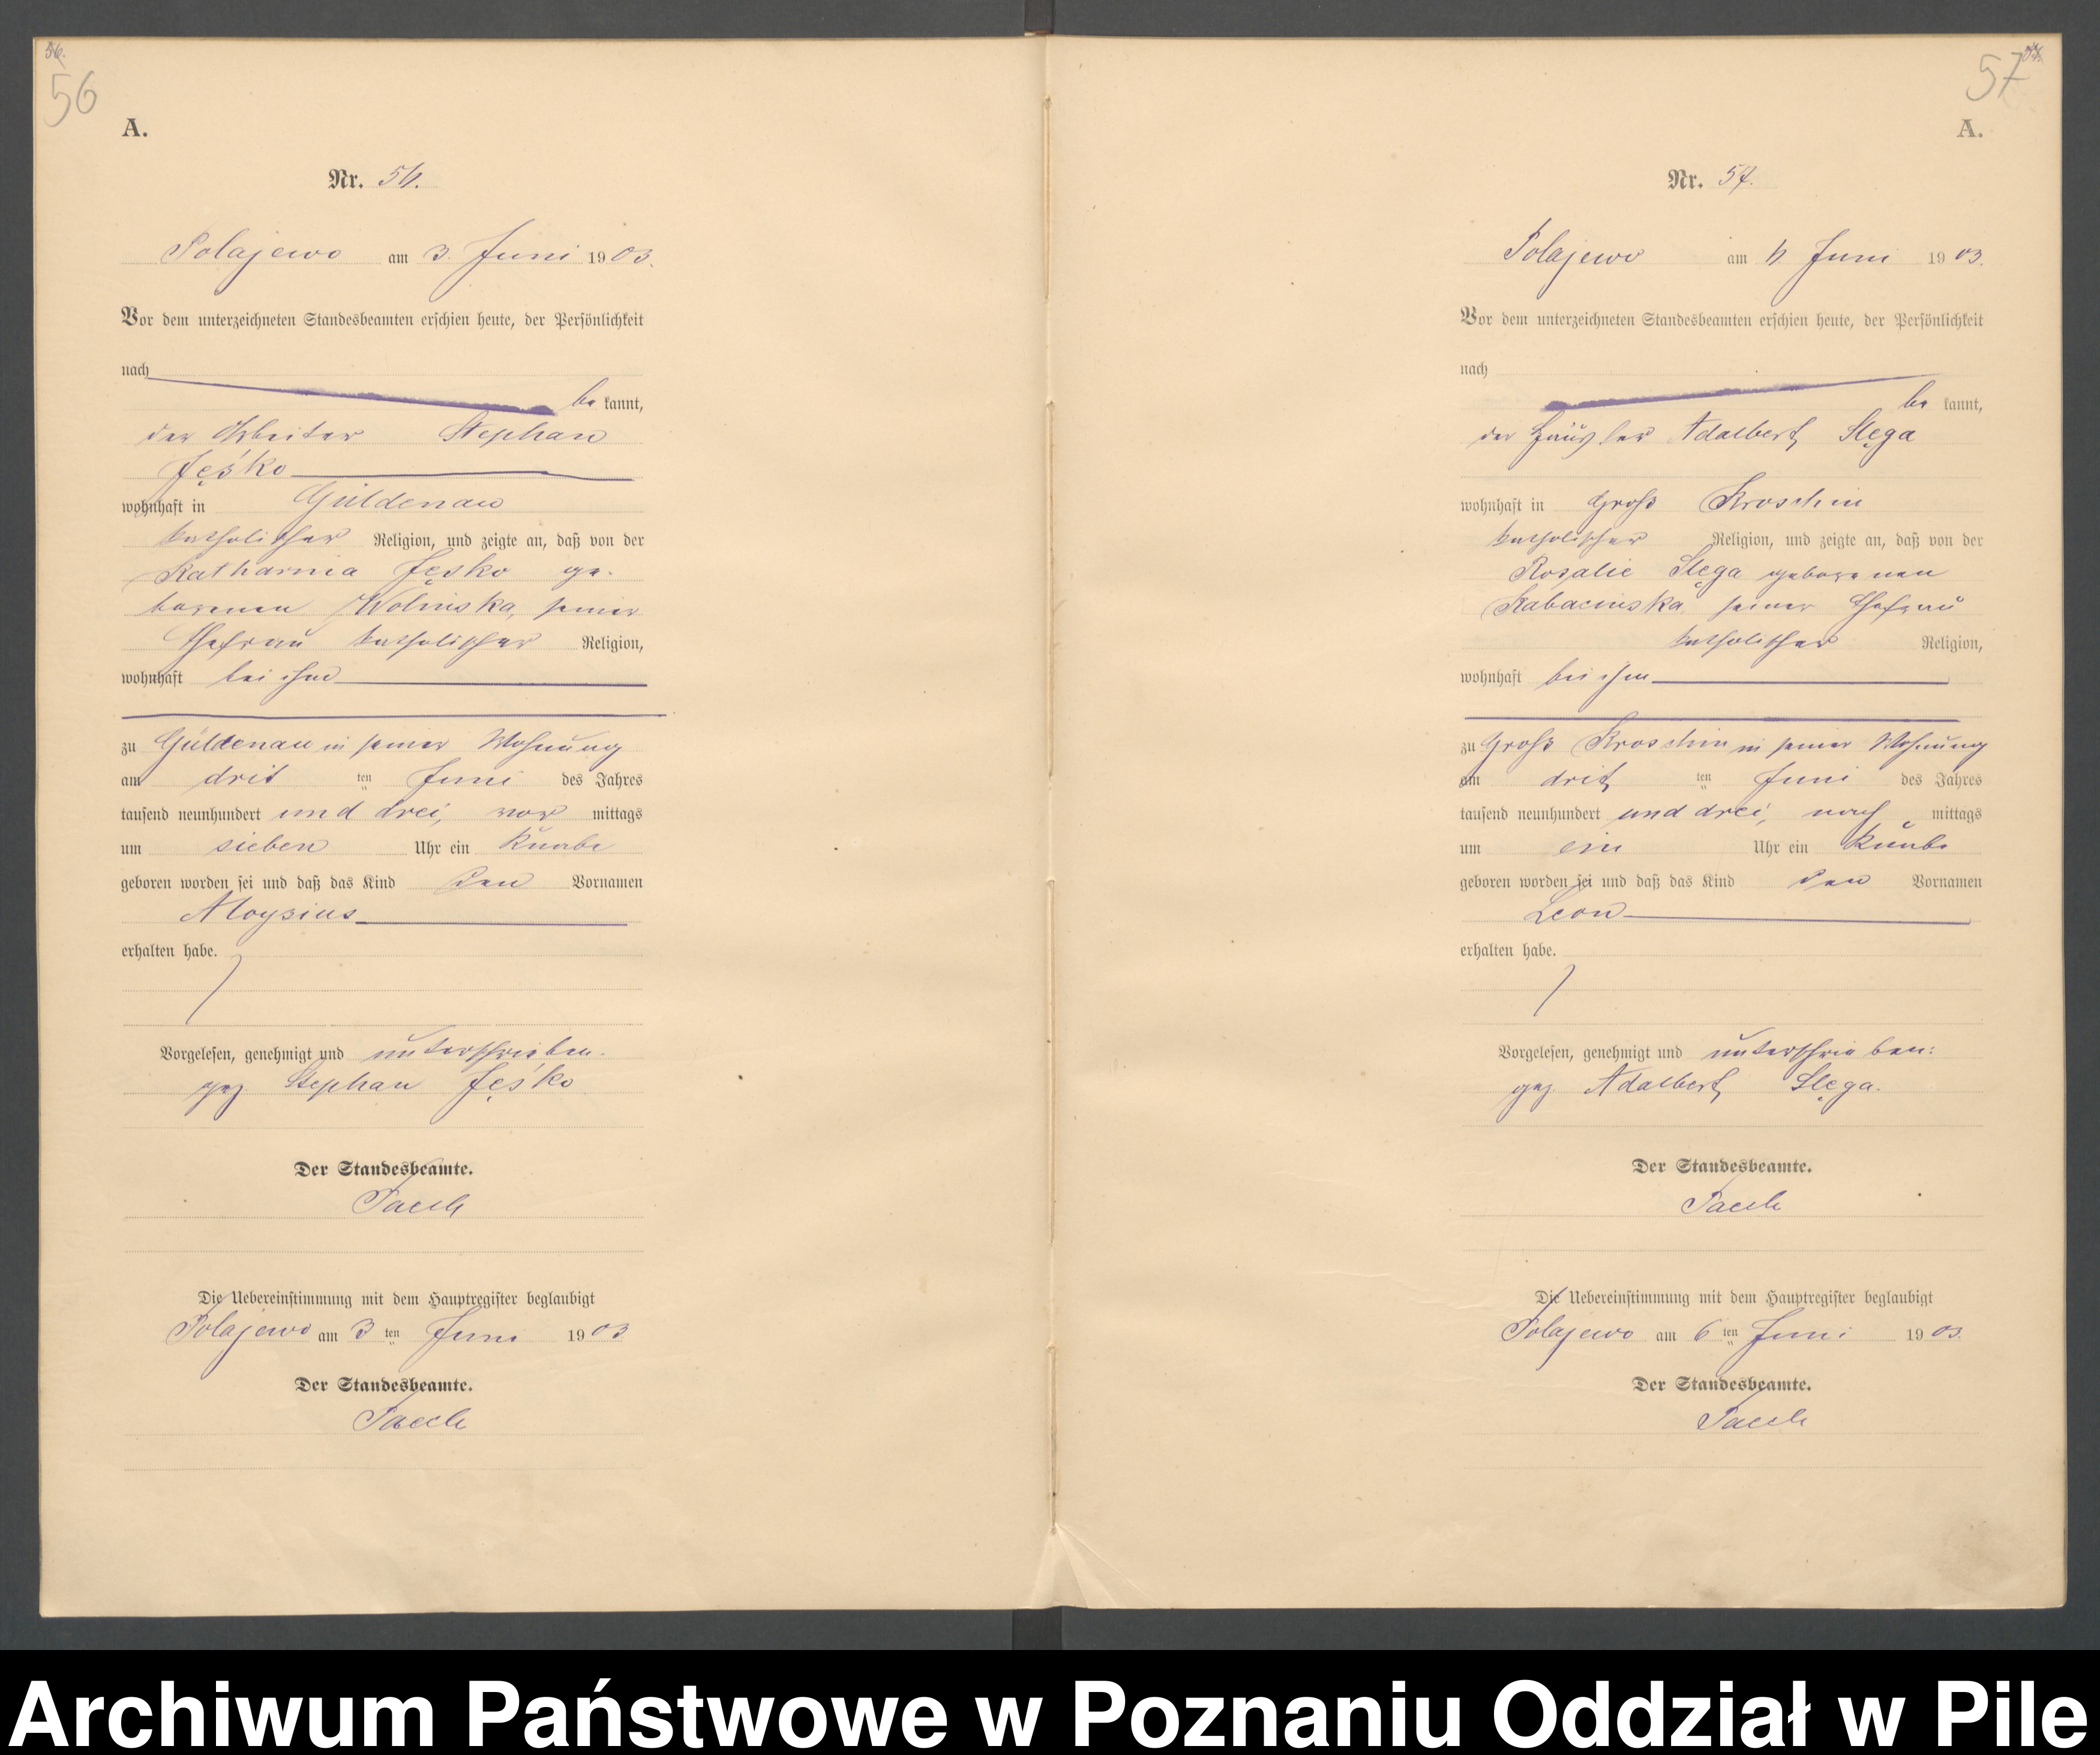 56.
56
A.
Nr. 56.
Polajewo am 3. Juni 1903.
Vor dem unterzeichneten Standesbeamten erschien heute, der Persönlichkeit
nach
be kannt,
der Arbeiter Stephan
Jęśko
wohnhaft in Güldenau
katholischer Religion, und zeigte an, daß von der
Katharina Jęsko ge-
borenen Wolinska, seiner
Ehefrau katholischer Religion,
wohnhaft bei ihm
zu Güldenau in seiner Wohnung
am drit ten Juni des Jahres
tausend neunhundert und drei, vor mittags
um sieben Uhr ein Knabe
geboren worden sei und daß das Kind den Vornamen
Aloysius
erhalten habe.
Vorgelesen, genehmigt und unterschrieben.
gez Stephan Jęśko
Der Standesbeamte.
Die Uebereinstimmung mit dem Hauptregister beglaubigt
Polajewo am 3 ten Juni 1903
Der Standesbeamte.
57
A.
Nr. 57.
Polajewo am 6 Juni 1903.
Vor dem unterzeichneten Standesbeamten erschien heute, der Persönlichkeit
nach
be kannt,
der Häusler Adalbert Slęga
wohnhaft in Groß Kroschin
katholischer Religion, und zeigte an, daß von der
Rosalie Slęga geborenen
Kabacinska seiner Ehefrau
katholischer Religion,
wohnhaft bei ihm
zu Groß Kroschin in seiner Wohnung
am drit ten Juni des Jahres
tausend neunhundert und drei, nach mittags
um ein Uhr ein Knabe
geboren worden sei und daß das Kind den Vornamen
Leon
erhalten habe.
Vorgelesen, genehmigt und unterschrieben:
gez. Adalbert Slęga.
Der Standesbeamte.
Die Uebereinstimmung mit dem Hauptregister beglaubigt
Polajewo am 6 ten Juni 1903.
Der Standesbeamte.
Archiwum Państwowe w Poznaniu Oddział w Pile